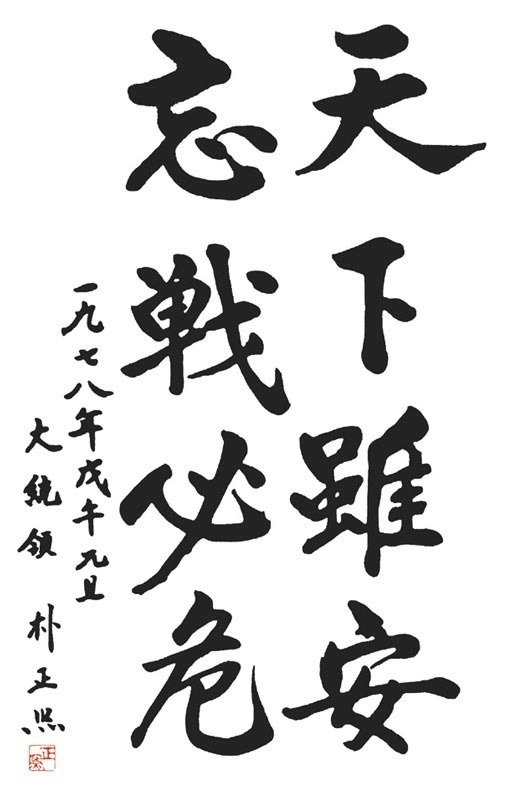 天下雖安
忘戦必危
一九七八年戊午元旦
大統領 朴正熙
正熙